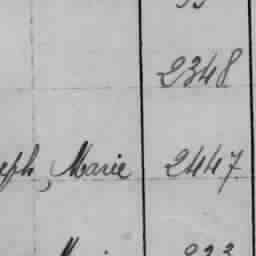 2348
eph, Marie 2447